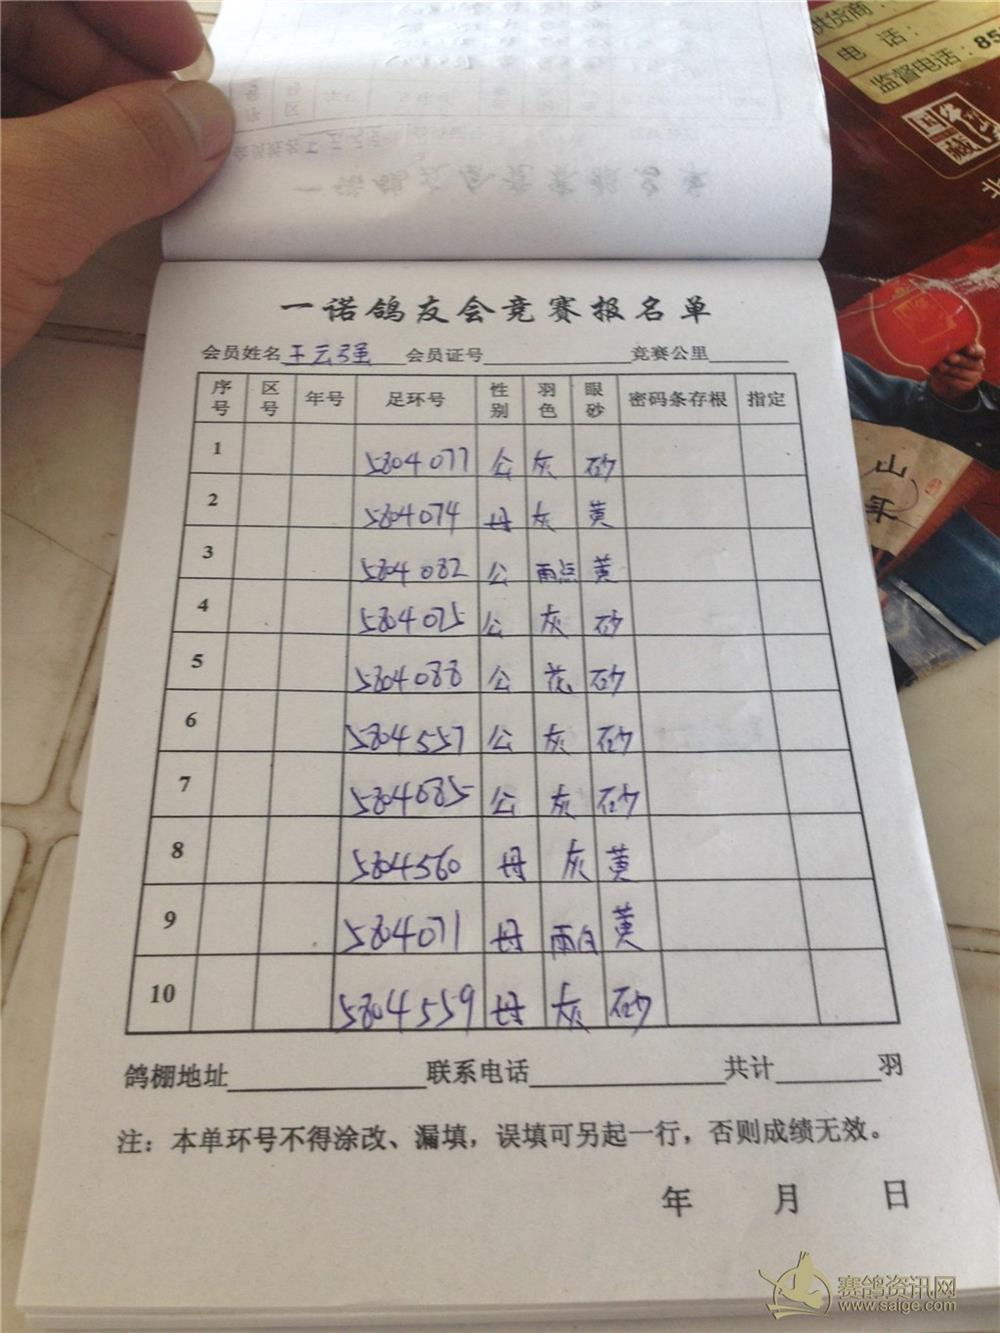 供货商：
电 话：
监督电话：85
国
藏
北
山
年
一诺鸽友会竞赛报名单
会员姓名 王云强 会员证号 竞赛公里
序号 区号 年号 足环号 性别 羽色 眼砂 密码条存根 指定
1 5804077 公 灰 砂
2 5804074 母 灰 黄
3 5804082 公 雨点 黄
4 5804075 公 灰 砂
5 5804088 公 花 砂
6 5804557 公 灰 砂
7 5804085 公 灰 砂
8 5804560 母 灰 黄
9 5804071 母 雨白 黄
10 5804559 母 灰 砂
鸽棚地址 联系电话 共计 羽
注：本单环号不得涂改、漏填，误填可另起一行，否则成绩无效。
年 月 日
赛鸽资讯网
www.saige.com